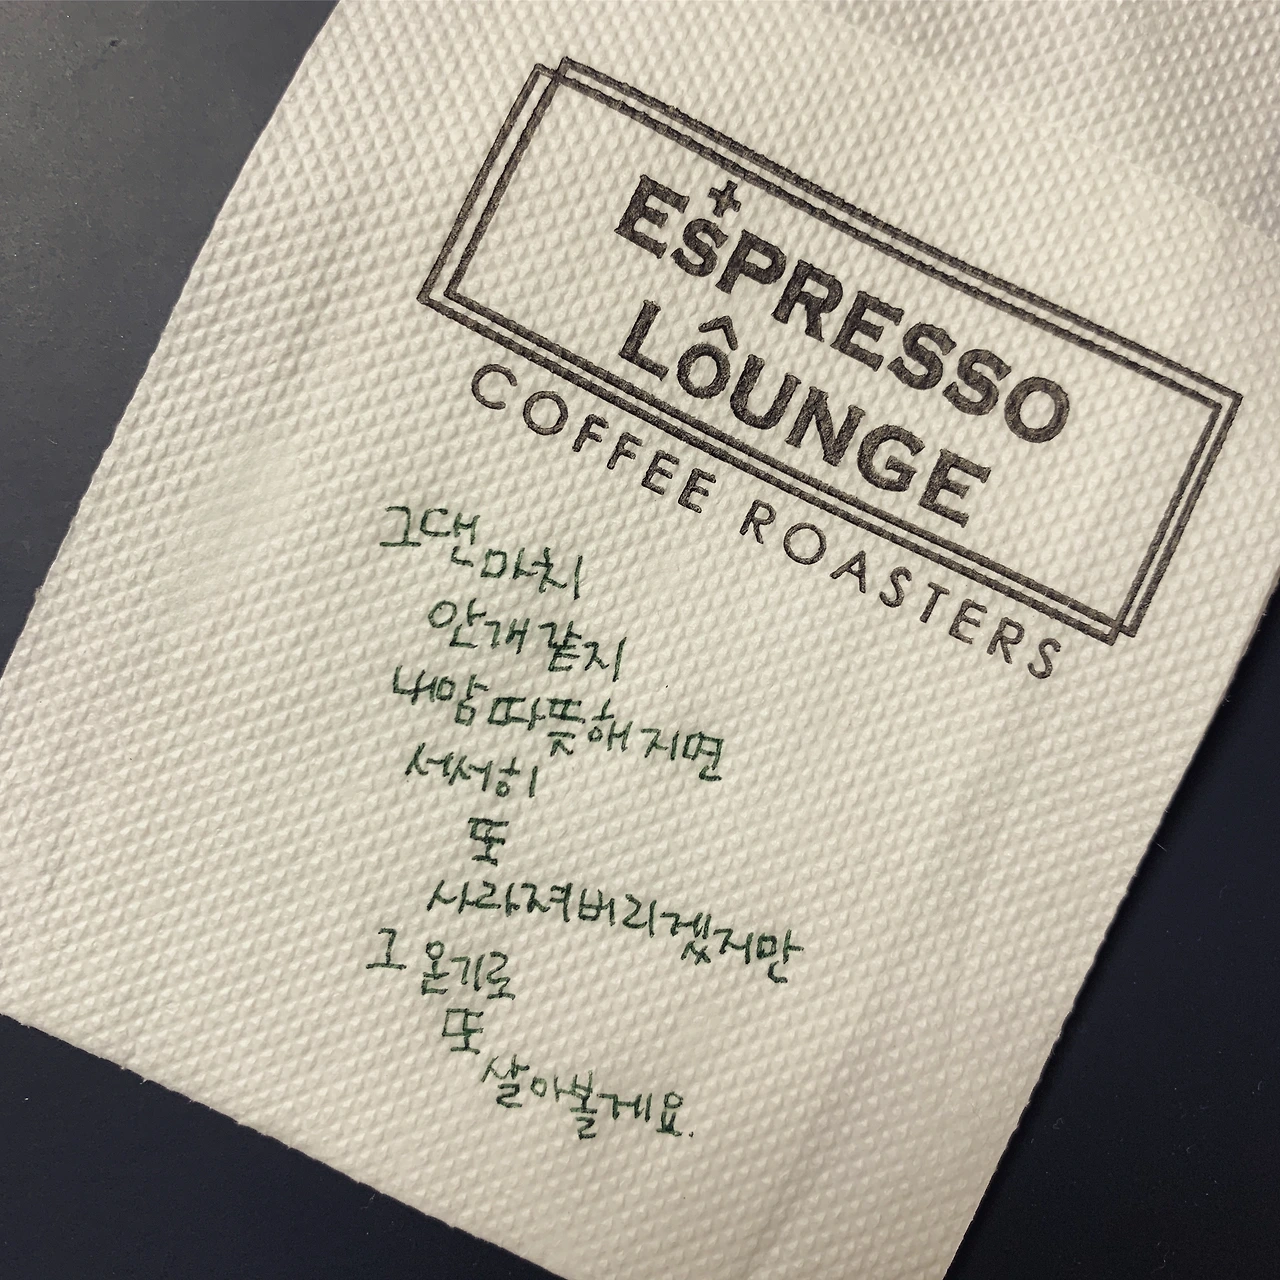 ESPRESSO
LÔUNGE
COFFEE ROASTERS
그댄 마치
안개 같지
내맘 따뜻해 지면
서서히
또
사라져버리겠지만
그 온기로
또
살아볼게요.